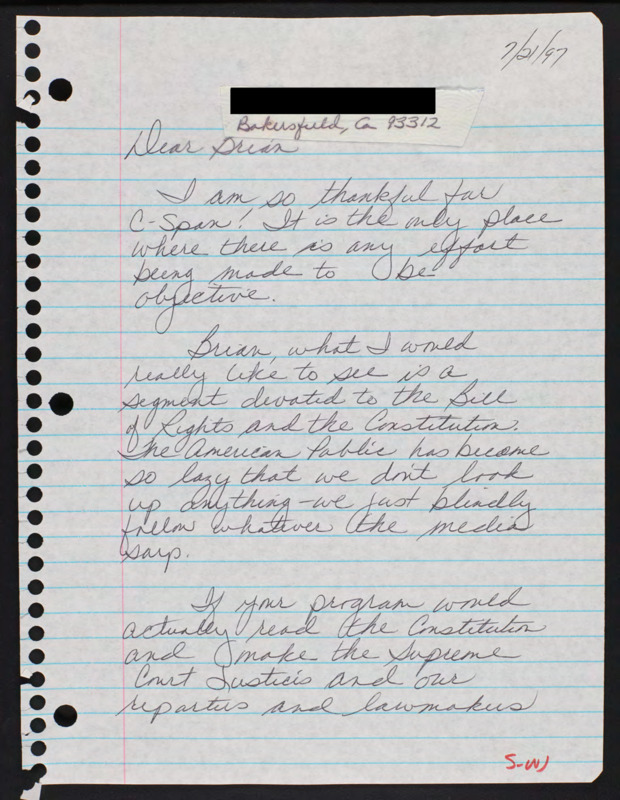 7/21/97
Bakersfield, Ca 93312
Dear Brian
I am so thankful for
C-Span! It is the only place
where there is any effort
being made to be
objective.
Brian, what I would
really like to see is a
segment devoted to the Bill
of Rights and the Constitution.
The American Public has become
so lazy that we don't look
up anything - we just blindly
follow whatever the media
says.
If your program would
actually read the Constitution
and make the Supreme
Court Justices and our
reporters and lawmakers
S-W